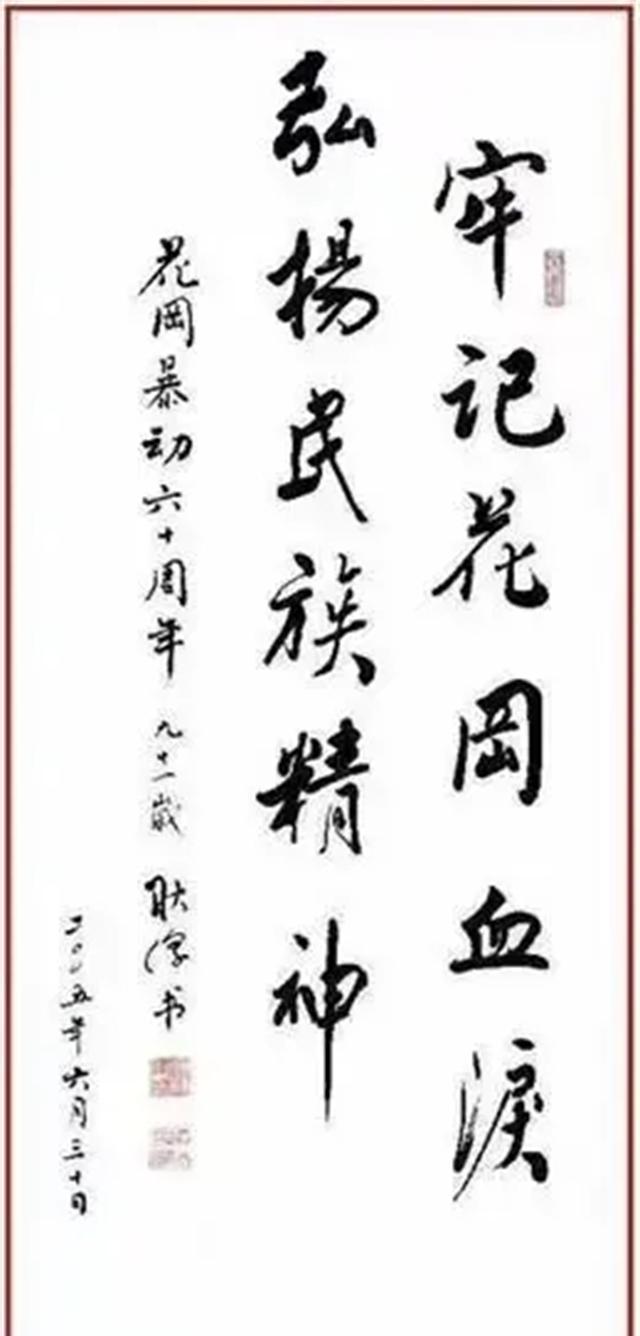 牢记花冈血淚
弘揚民族精神
花冈暴动六十周年 九十一歲 耿谆书
二〇〇五年六月三十日